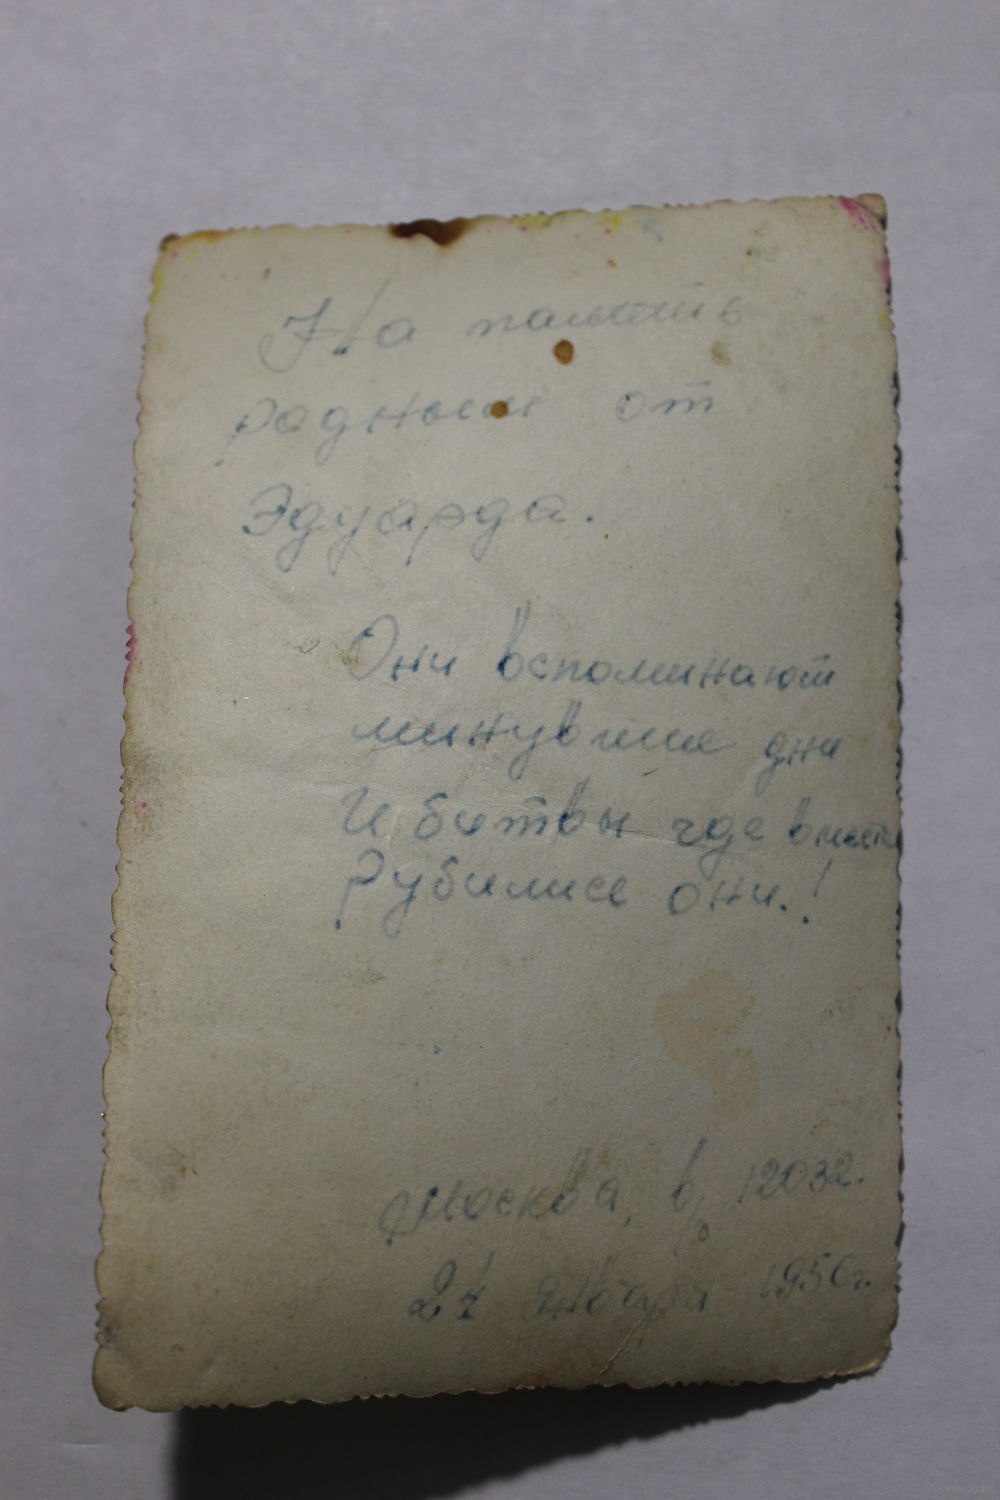 На память
родным от
Эдуарда.
Они вспоминают
минувшие дни
И битвы где вместе
Рубились они.!
Москва, в/о 12032.
24 января 1950г.